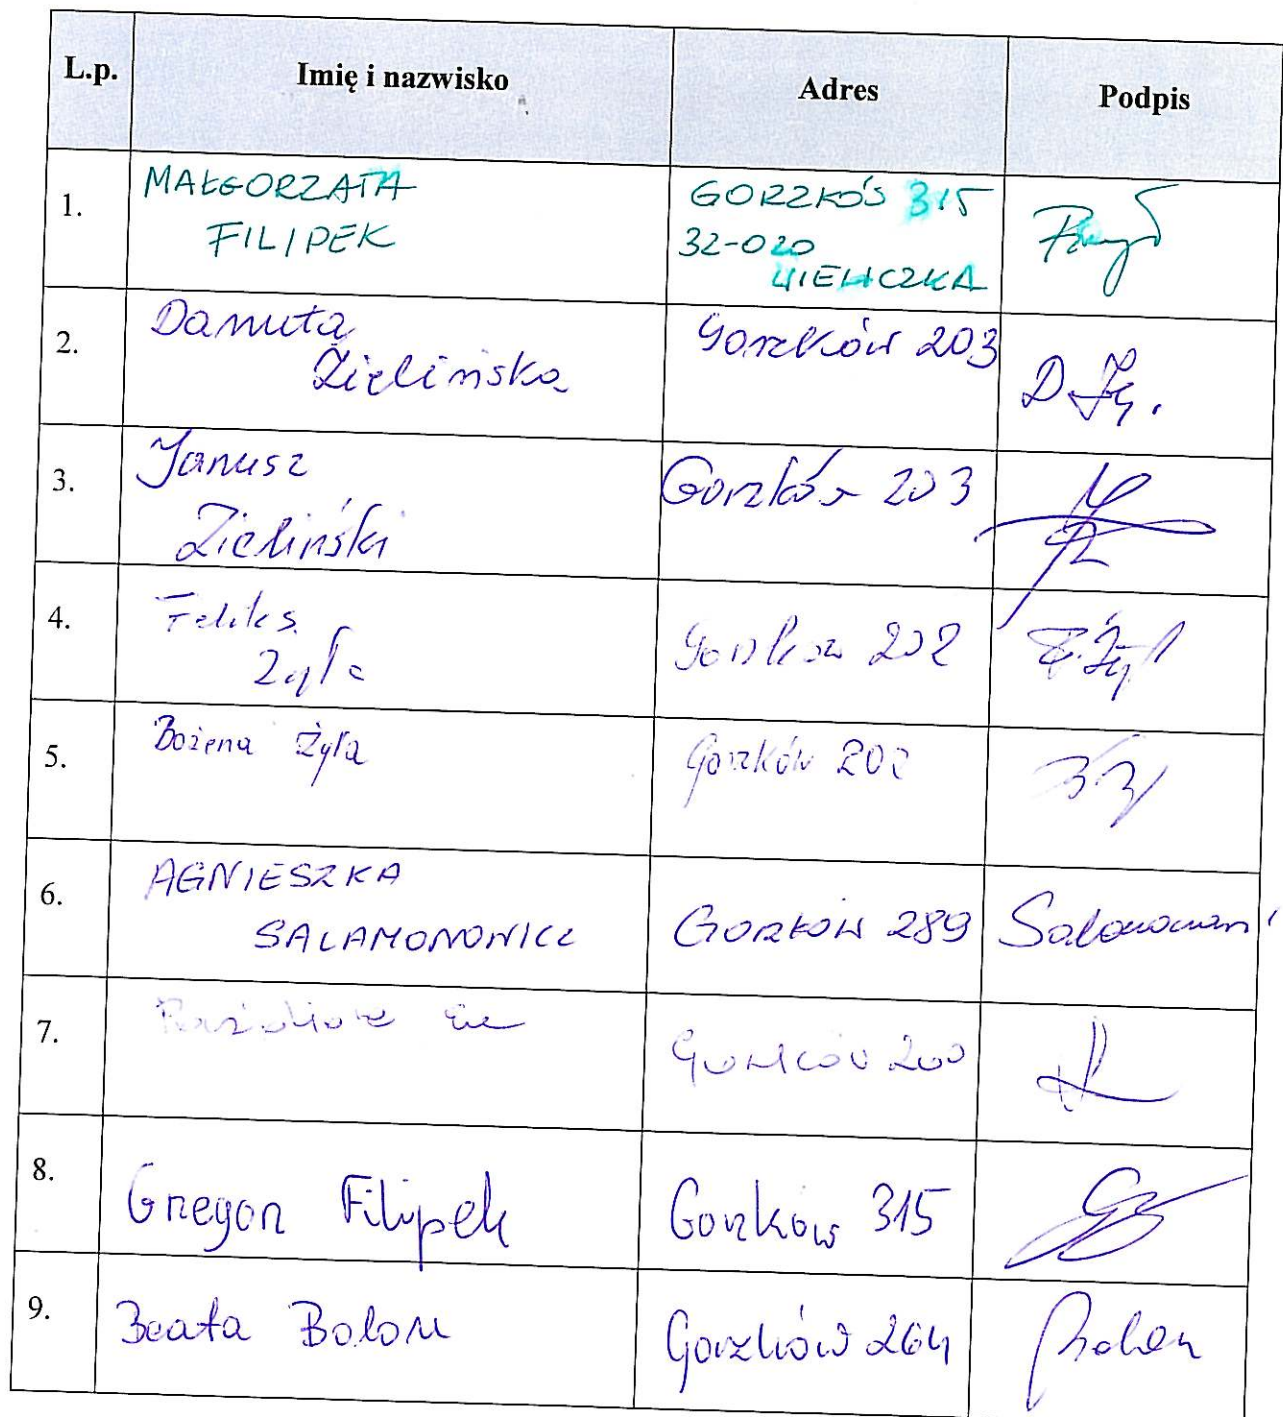 L.p. Imię i nazwisko Adres Podpis
1. MAŁGORZATA
FILIPEK
GORZKÓS 315
32-020
WIELICZKA
2. Danuta
Zielińska
Gorzków 203
3. Janusz
Zieliński
Gorzków 203
4. Feliks
Żyła
Gorzków 202
5. Bożena Żyła
Gorzków 202
6. AGNIESZKA
SALAMONOWICZ
GORZKÓW 289
7.
Gorzków 200
8. Grzegorz Filipek
Gorzków 315
9. Beata Bolon
Gorzków 264